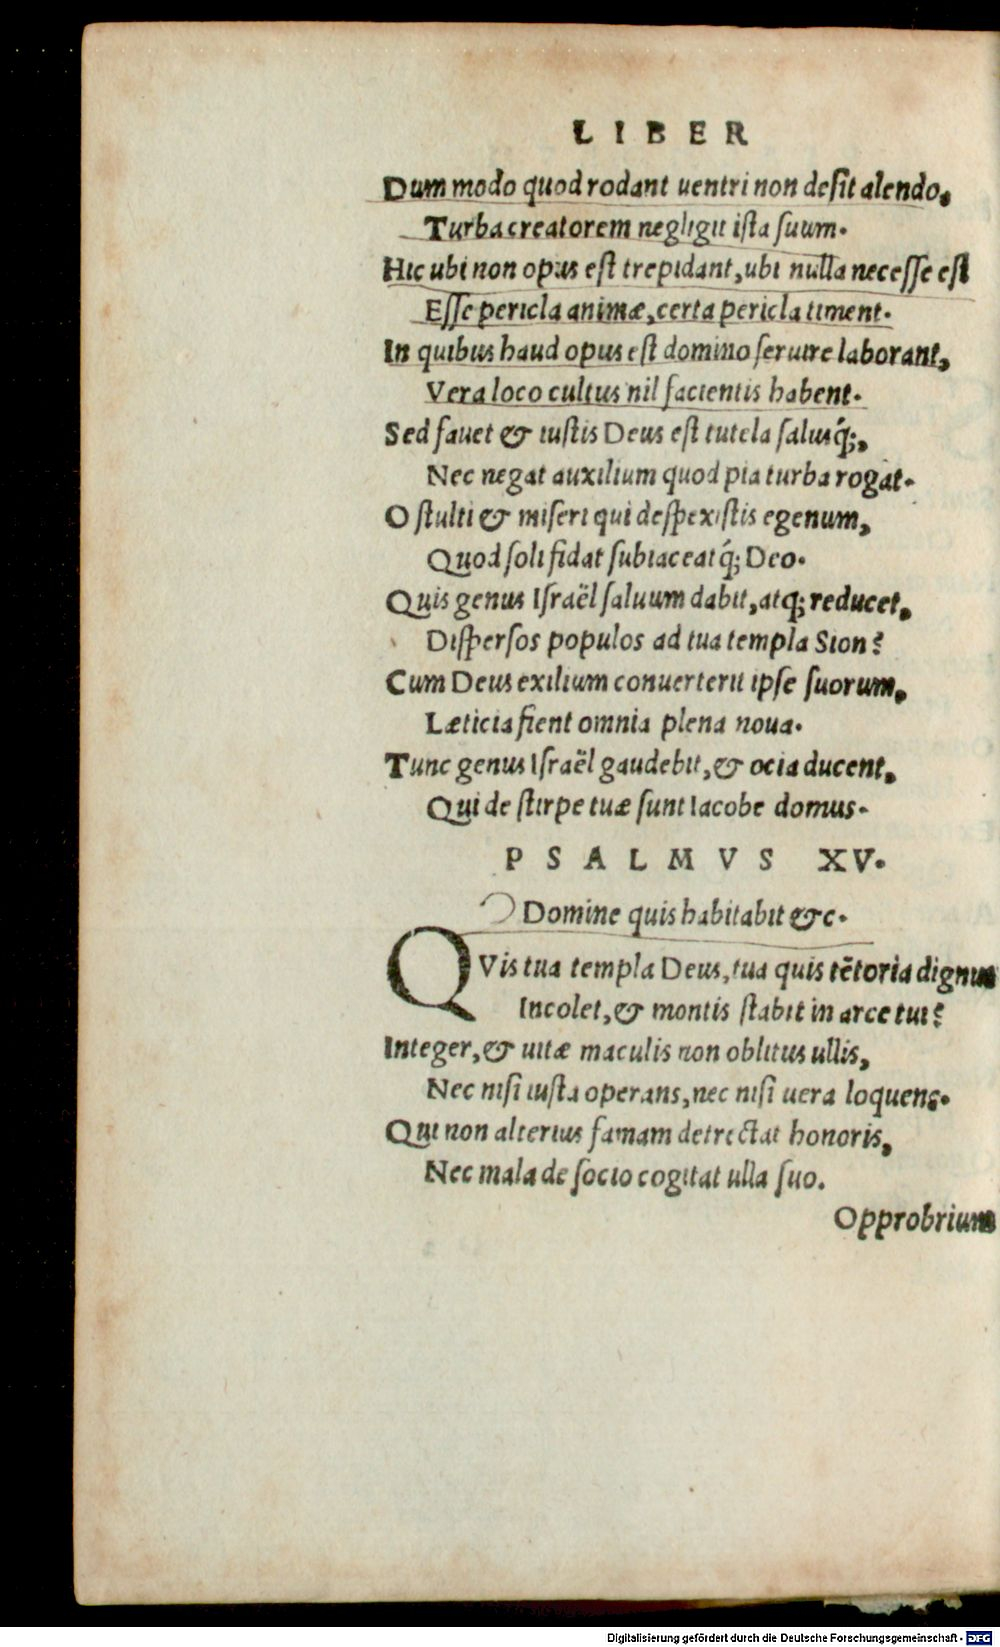 LIBER
Dum modo quod rodant uentri non desit alendo,
Turba creatorem negligit ista suum.
Hic ubi non opus est trepidant, ubi nulla necesse est
Esse pericla animæ, certa pericla timent.
In quibus haud opus est domino seruire laborant,
Vera loco cultus nil facientis habent.
Sed fauet & iustis Deus est tutela salusq́;,
Nec negat auxilium quod pia turba rogat.
O stulti & miseri qui despexistis egenum,
Quod soli fidat subiaceatq́; Deo.
Quis genus Israël saluum dabit, atq; reducet,
Dispersos populos ad tua templa Sion?
Cum Deus exilium conuerterit ipse suorum,
Læticia fient omnia plena noua.
Tunc genus Israël gaudebit, & ocia ducent,
Qui de stirpe tuæ sunt Iacobe domus.
PSALMVS XV.
Domine quis habitabit &c.
QVis tua templa Deus, tua quis tētoria dignus
Incolet, & montis stabit in arce tui?
Integer, & uitæ maculis non oblitus ullis,
Nec nisi iusta operans, nec nisi uera loquens.
Qui non alterius famam detrectat honoris,
Nec mala de socio cogitat ulla suo.
Opprobrium
Digitalisierung gefördert durch die Deutsche Forschungsgemeinschaft - DFG